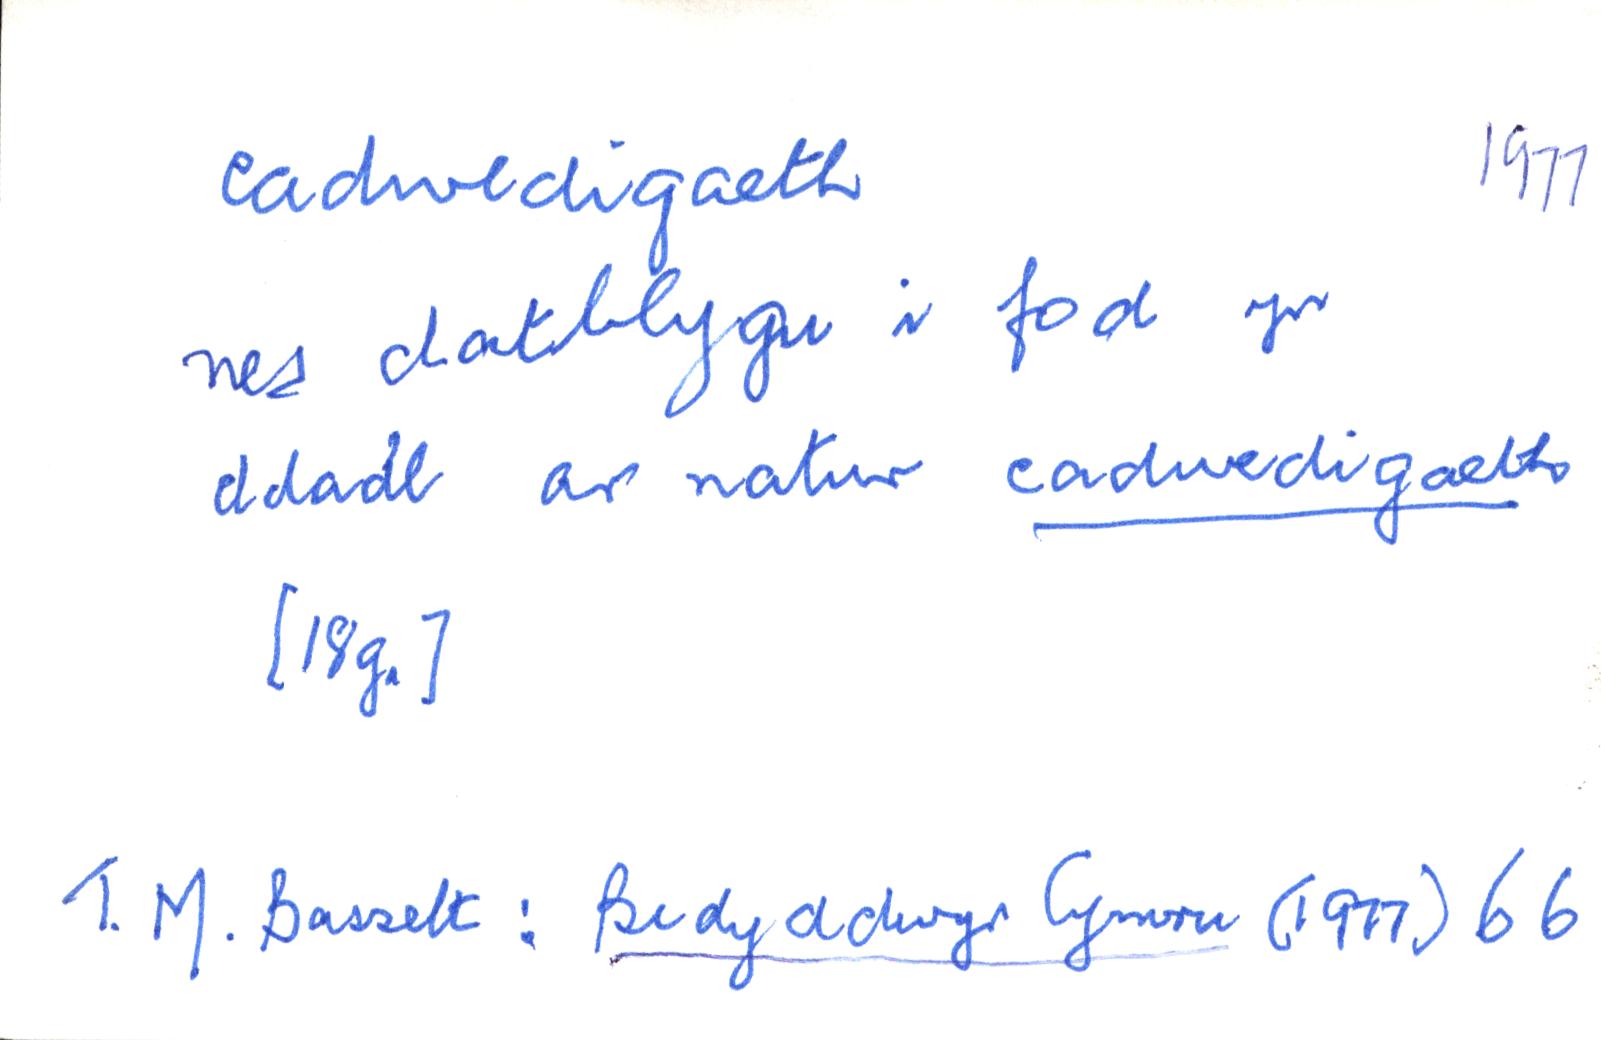 cadwedigaeth
1977
nes datblygu i fod yn
ddadl ar natur cadwedigaeth
[18g.]
T. M. Bassett : Bedyddwyr Cymru (1977) 66